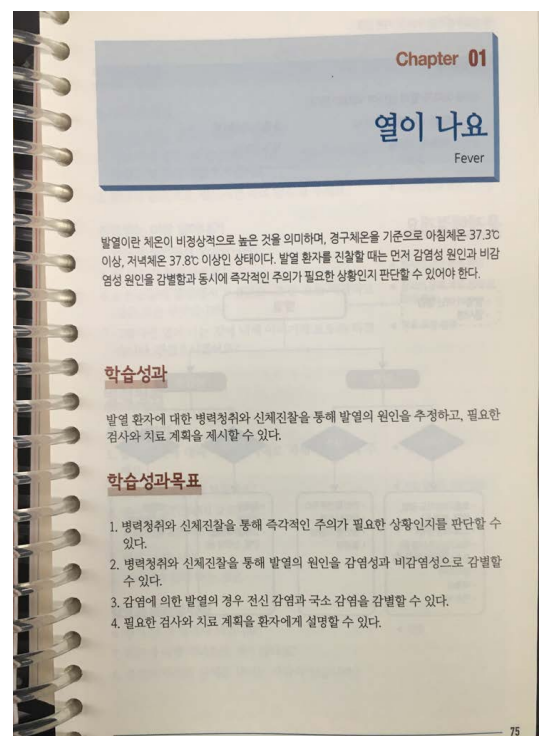 Chapter 01
열이 나요
Fever
발열이란 체온이 비정상적으로 높은 것을 의미하며, 경구체온을 기준으로 아침체온 37.3℃
이상, 저녁체온 37.8℃ 이상인 상태이다. 발열 환자를 진찰할 때는 먼저 감염성 원인과 비감
염성 원인을 감별함과 동시에 즉각적인 주의가 필요한 상황인지 판단할 수 있어야 한다.
학습성과
발열 환자에 대한 병력청취와 신체진찰을 통해 발열의 원인을 추정하고, 필요한
검사와 치료 계획을 제시할 수 있다.
학습성과목표
1. 병력청취와 신체진찰을 통해 즉각적인 주의가 필요한 상황인지를 판단할 수
있다.
2. 병력청취와 신체진찰을 통해 발열의 원인을 감염성과 비감염성으로 감별할
수 있다.
3. 감염에 의한 발열의 경우 전신 감염과 국소 감염을 감별할 수 있다.
4. 필요한 검사와 치료 계획을 환자에게 설명할 수 있다.
75